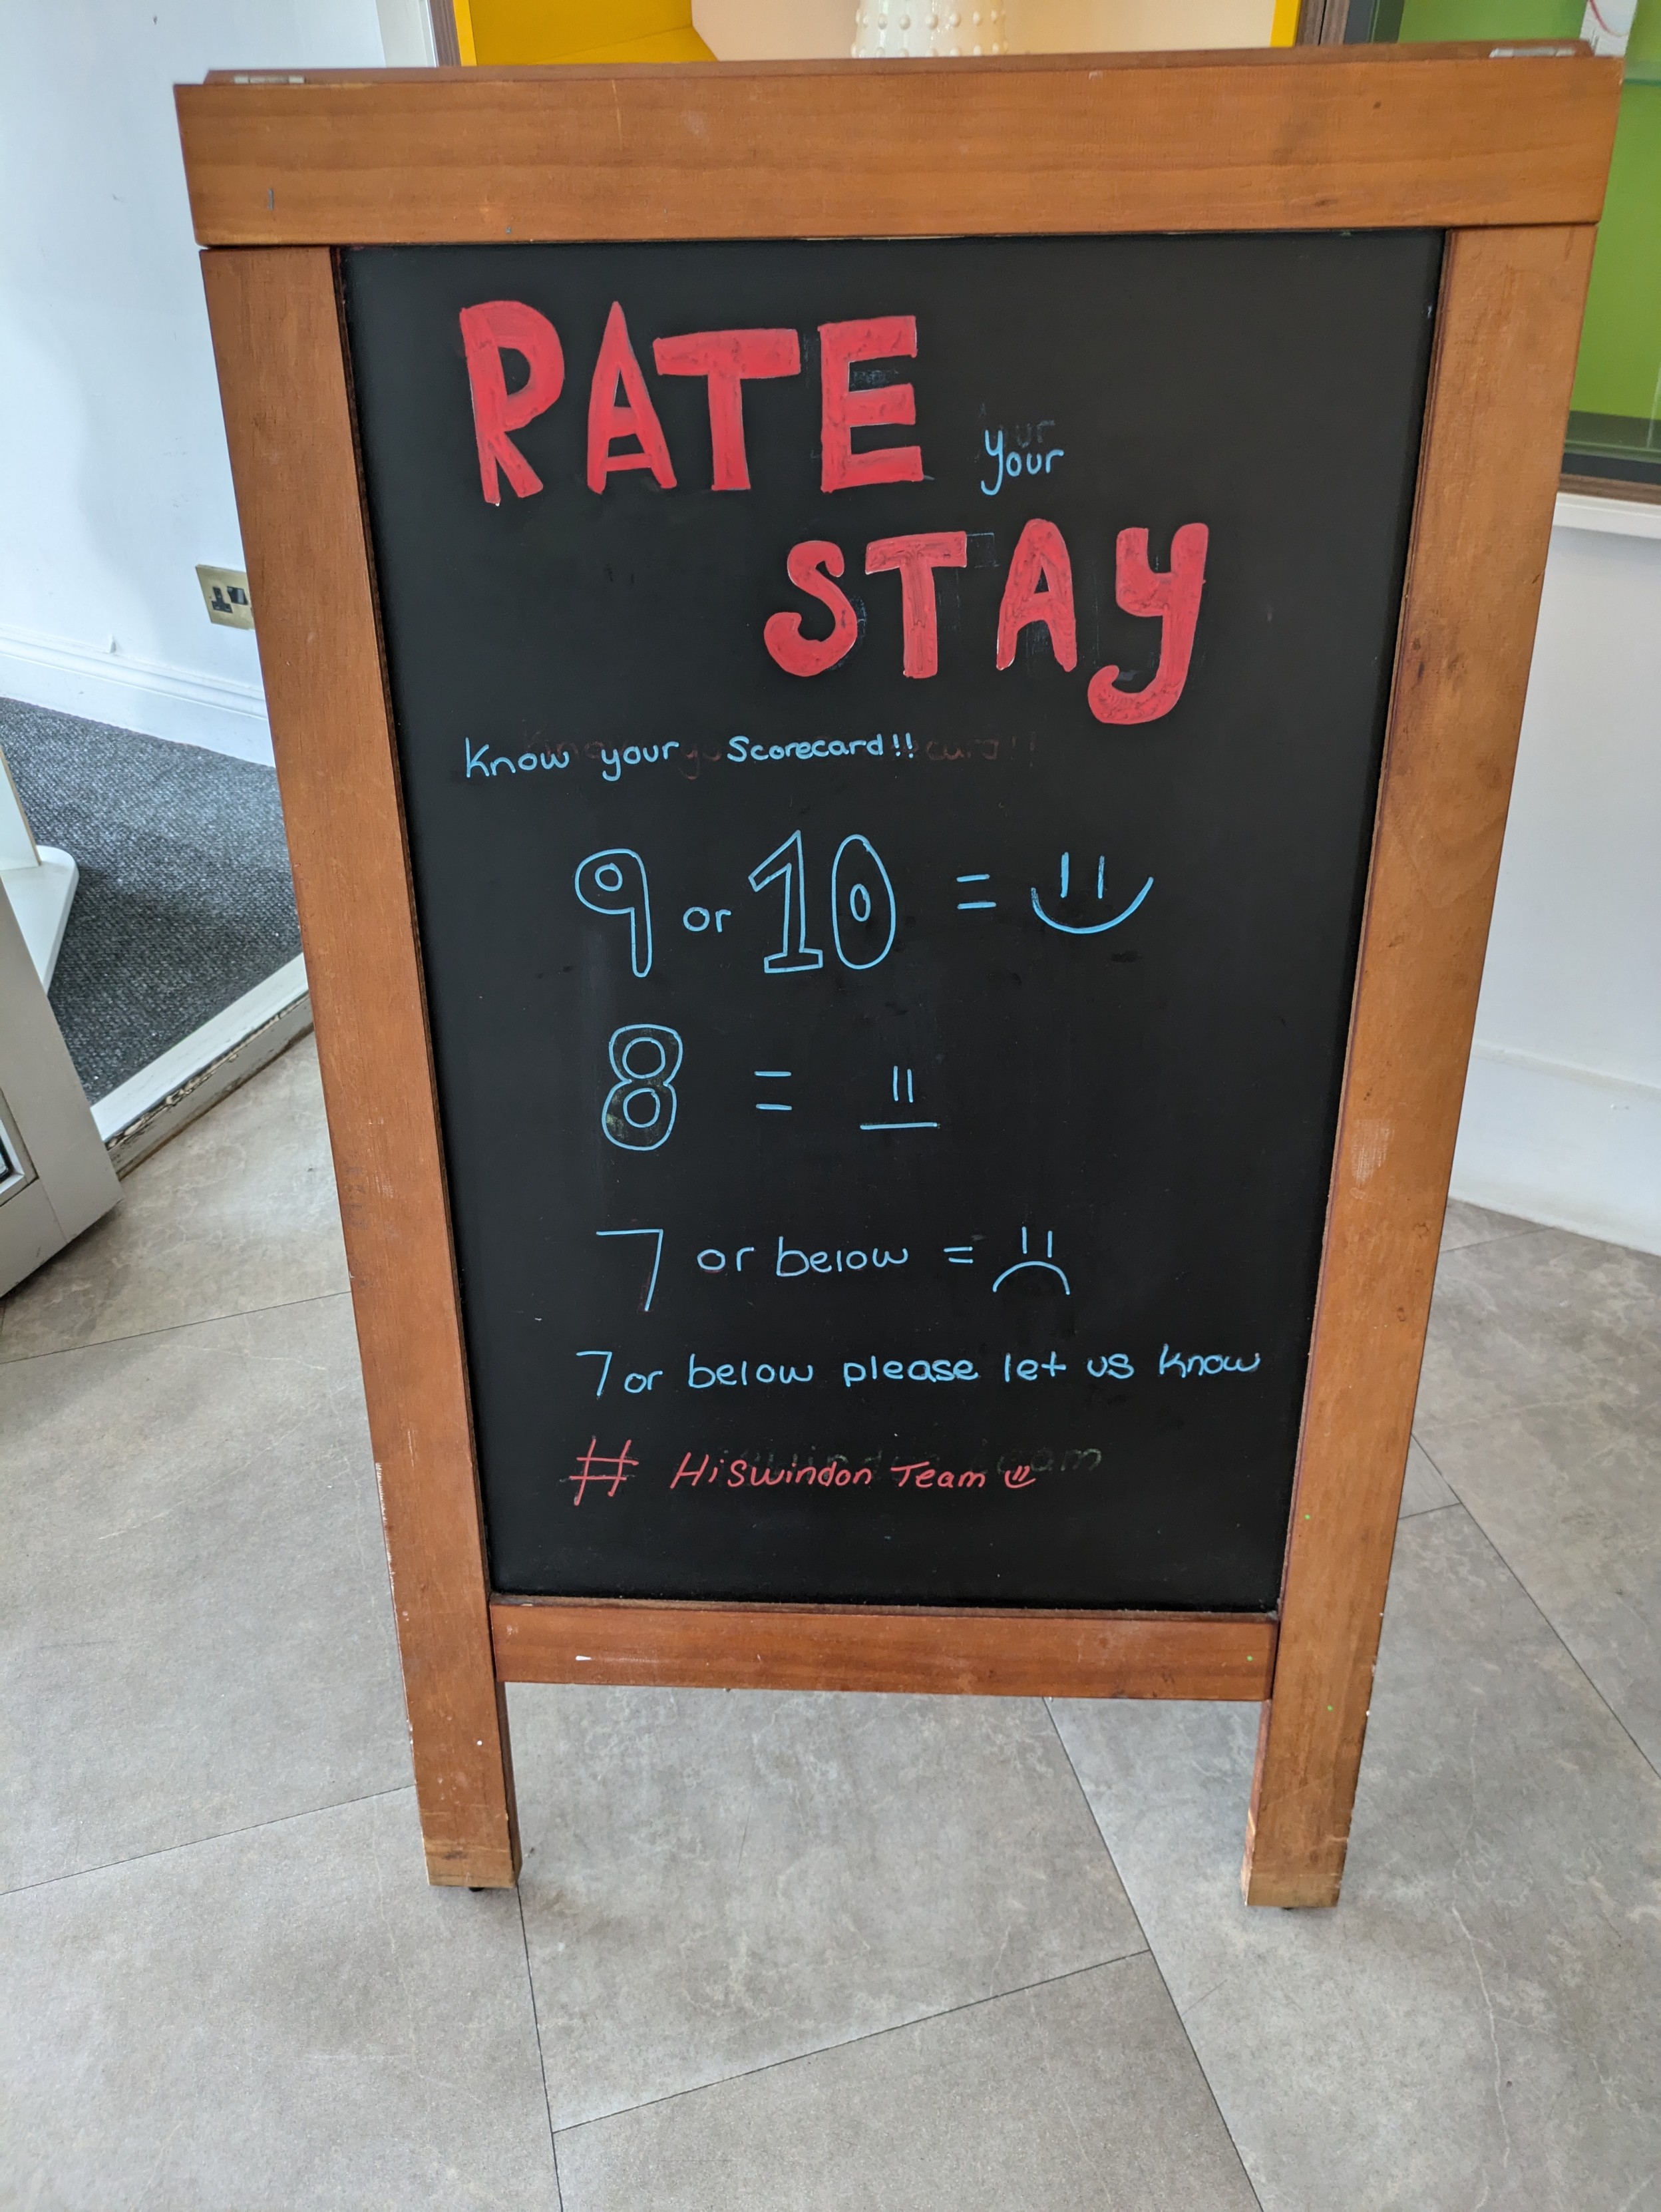 RATE your
STAY
Know your Scorecard!!
9 or 10 =
8 =
7 or below =
7 or below please let us know
# HiSwindon Team